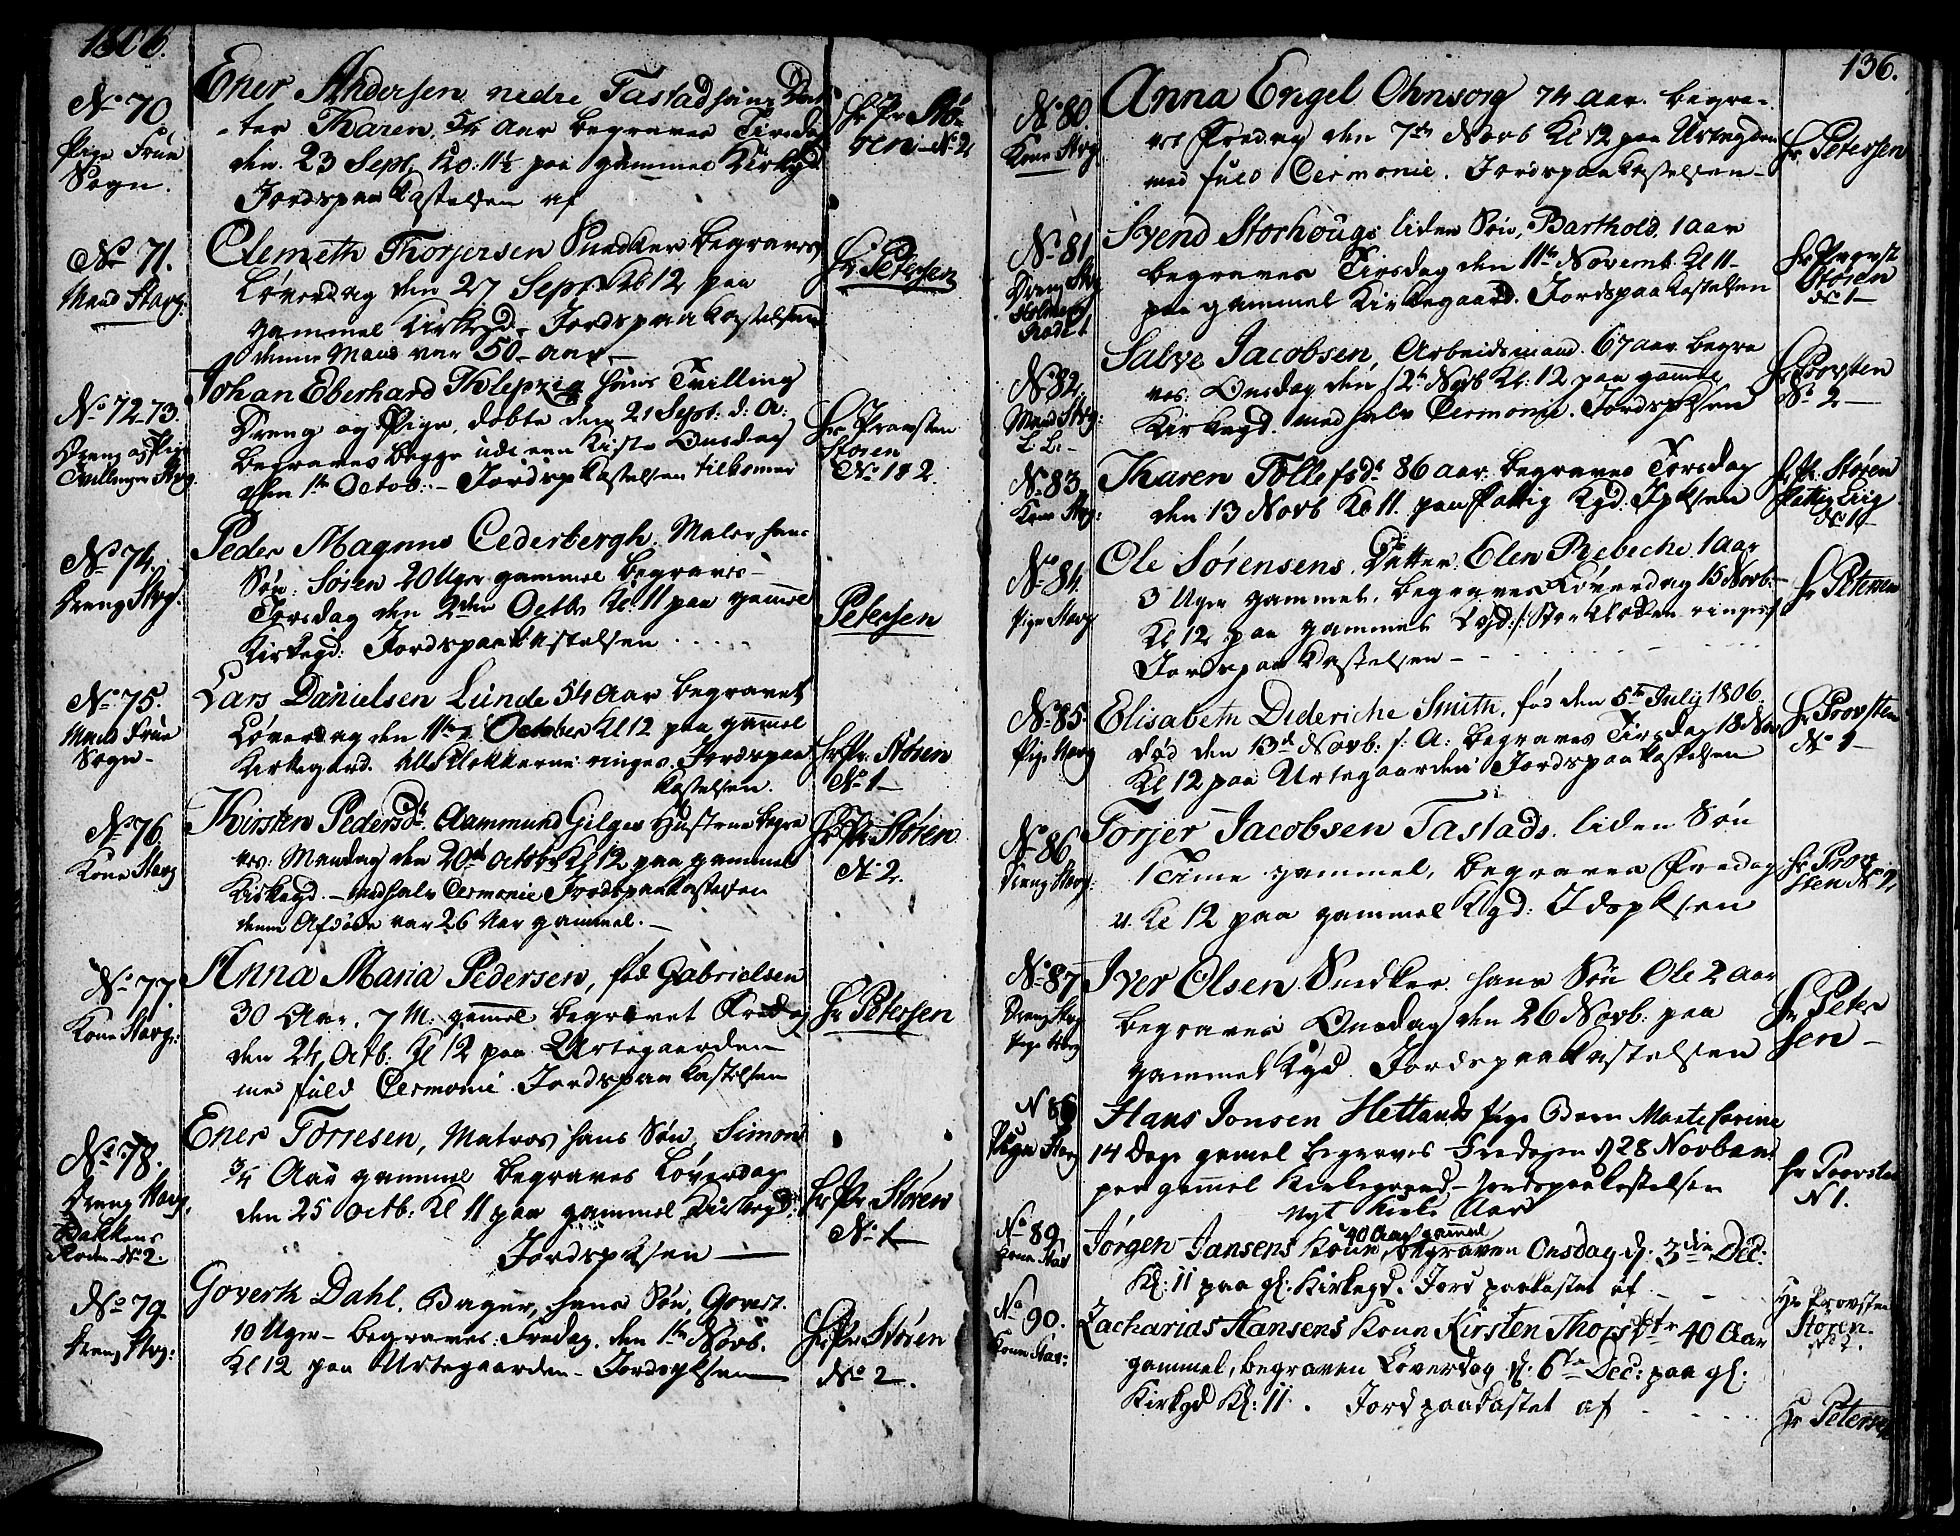 1806.
No 70.
Pige Frue
Sogn.
Ener Andersen nedre Tastad hans Dat-
-ter Karen, 5/4 Aar begraves Tirsdag
den 23 Sept. Klo: 11½ paa gammel Kirkgd
Jordspaakastelsen af
Hr Pr Stø-
ren No 2
No 71.
Mand Stavg:
Clemeth Thorjersen Snedker begraves
Løverdag den 27 Sept. Kl 12 paa
gammel Kirkegd. Jordspaakastelsen
denne Mand var 50 Aar
Hr Petersen
No 72.73.
Dreng og Pige
Tvillinger Stvg
Johan Eberhard Tholepzig hans Tvilling
Dreng og Pige, døbte den 21 Sept: d: A:
begraves begge udi een Kiste Onsdag
den 1te Octob: - Jordspkastelsen tilkomer
Hr Provsten
Støren
No 1 & 2
No 74.
Dreng Stvg:
Peder Magnus Cederbergh. Maler hans
Søn: Søren 20 Uger gammel begraves
Torsdag den 2den Octb. Kl. 11 paa gamle
Kirkegd: Jordspaakastelsen
Petersen
No 75.
Mand Frue
Sogn
Lars Danielsen Lunde 54 Aar begravet
Løverdag den 11te October Kl 12 paa gammel
Kirkegaard. Alle Klokkerne ringes. Jordspaa
kastelsen.
Hr Pr. Støren
No 1
No 76
Kone Stavg
Kirsten Pedersdr. Aammund Gilges Hustrue begra
ves: Mandag den 20de Octobr Kl 12 paa gammel
Kirkegd. - med halv Cermonie Jordspaakastelsen
denne Afdøde var 26 Aar gammel.
Hr Pr Støren
No 2.
No 77
Kone Stavg:
Anna Maria Pedersen, fød Gabrielsen
30 Aar, 7 M. gamel begravet Fredag
den 24 Octb. Kl 12 paa Urtegaarden
me fuld Cermonie. Jordspaakastelsen
Hr Petersen
No 78.
Dreng Stavg.
Bakkens
Rode No 2.
Ener Torresen, Matros hans Søn, Simon
¾ Aar gammel begraves Løverdag
den 25 Octb: Kl 11 paa gammel Kirkegd:
Jordspksen
Hr Pr Støren
No 1
No 79.
Dreng Stvg:
Goverth Dahl, Bager, hans Søn, Govert.
10 Uger - begraves Fredag den 1te Novb.
Kl 12 paa Urtegaarden - Jordspksen
Hr Pr Støren
No 2.
136.
No 80
Kone Stvg
Anna Engel Ohnsorg 74 Aar. begra-
ves Fredag den 7de Novb Kl 12 paa Urtegden
med fuld Cermonie. Jordspaakastelsen
Hr Petersen
No 81
Dreng Stvg
Holmens
Rode 1
Svend Storhougs liden Søn, Barthold 1 Aar
begraves Tirsdag den 11te Novemb. Kl 11
paa gammel Kirkegaard. Jordspaakastelsen
Hr Provst
Støren
No 1
No 82
Mand Stvg:
Salve Jacobsen, Arbeidsmand. 67 Aar begra
ves: Onsdag den 12te Novb Kl: 12 paa gamle
Kirkegd. med halv Cermonie. Jordspksen
Hr Provsten
No 2
No 83
Kone Stvg:
Karen Tollefsdr 86 Aar begraves Torsdag
den 13 Novb Kl 11 paa Fattig Kgd. Jpksen
Hr Pr. Støren
Fattig Liig
No 1
No 84
Pige Stavg
Ole Sørensens Datter Elen Rebeche 1 Aar
3 Uger gammel, begraves Løverdag 15 Novb.
Kl 12 paa gammel Kgd: /: Storklokken ringes :/
Jordspaakastelsen
Hr Petersen
No 85.
Pige Stavg
Elisabeth Dideriche Smith, fød den 5te July 1806.
død den 13de Novb: s: A: begraves Tirsdag 18 Nov
Kl 12 paa Urtegaarden Jordspaakastelsen
Hr Provsten
No 1
No 86
Dreng Stavg:
Torjer Jacobsen Tastads liden Søn
1 Time gammel, begraves Fredag
Kl 12 paa gammel Kgd: Jdspksen
Hr Prov
sten No 1,
No 87
Dreng Stvg
Iver Olsen Snedker hans Søn Ole 2 Aar
begraves Onsdag den 26 Novb: paa
gammel Kgd. Jordspaakastelsen
Hr Peter
sen
N 88
Pige Stavg
Hans Jonsen Hetlands Pige Barn Marte Corine
14 Dage gamel begraves Fredagen d 28 Novbem
paa gamel Kirkegaard - Jordspaakastelsen
Nyt Kirke Aar
Hr Provsten
N 1.
No 89
Kone Stav
Jørgen Jansens Kone, 40 Aar gammel begraven Onsdag d. 3die Dec:
Kl: 11 paa gl. Kirkegd. Jord paakastet af
Hr Provsten
Støren.
No 2.
No 90.
Kone Stav:
Zacharias Hansens Kone Kirsten Thorsdatr 40 Aar
gammel, begraven Løverdag d. 6te Dec: paa gl.
Kirkgd Kl: 11. Jord paakastet af
Hr Petersen